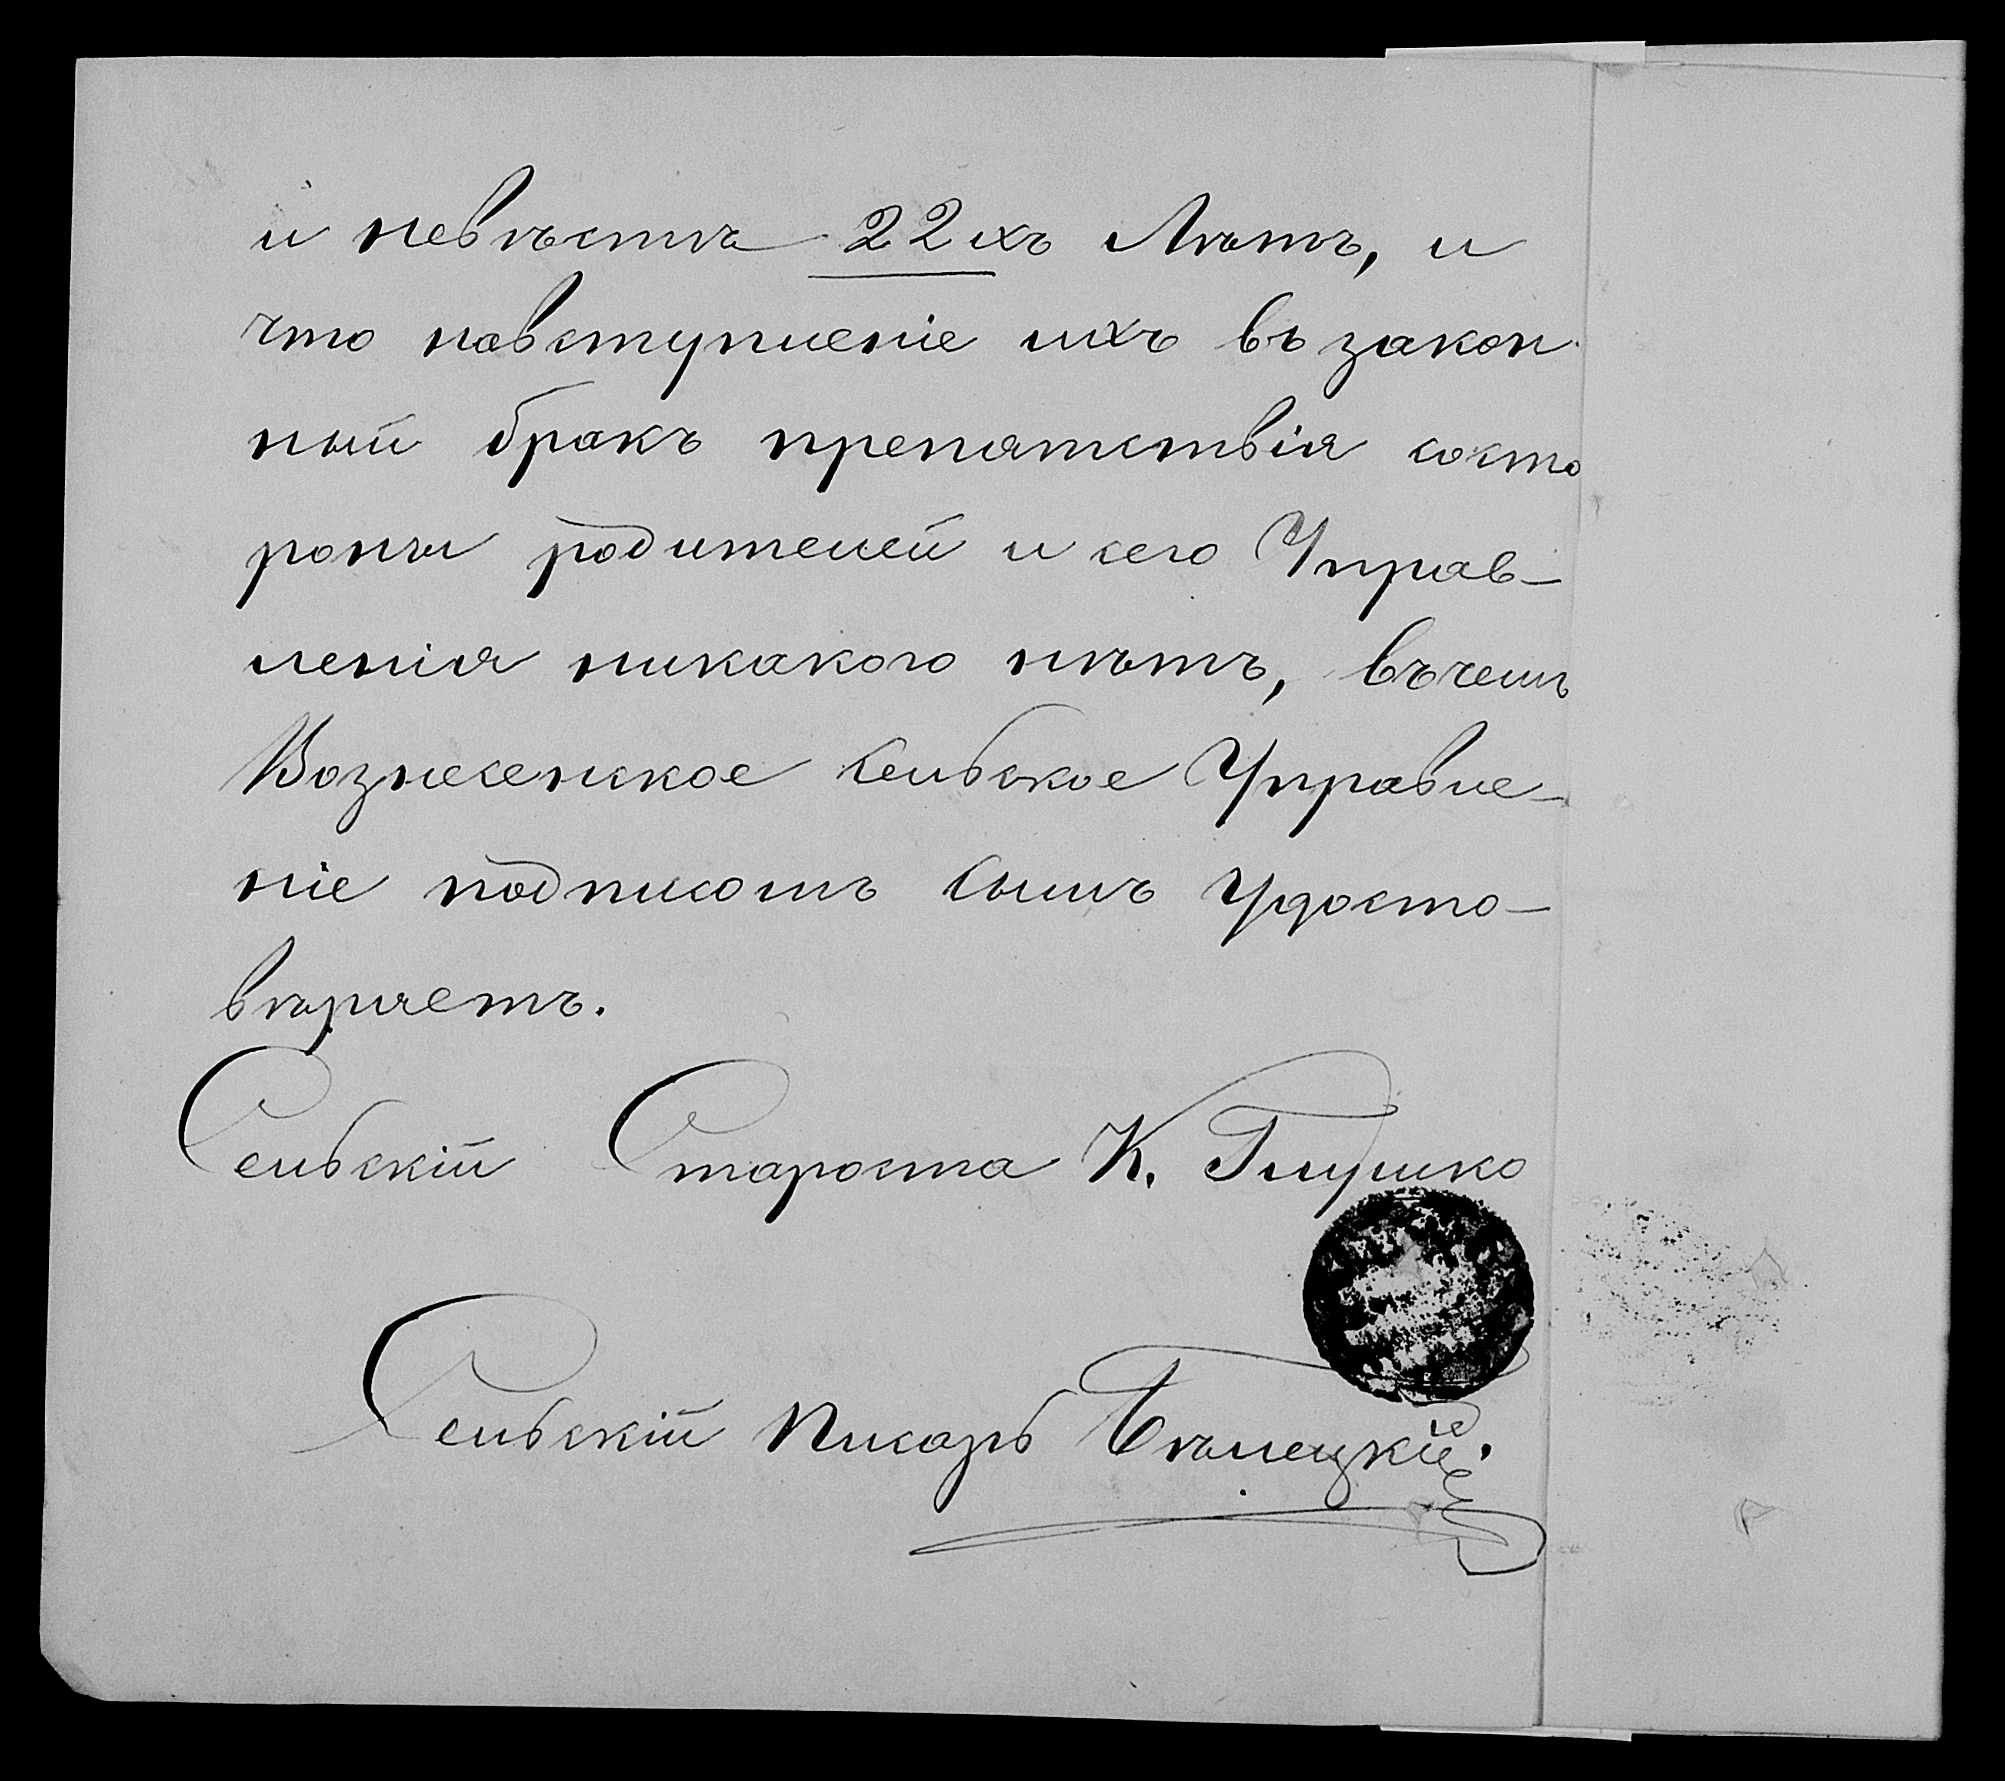 и невѣстѣ 22ихъ Лѣтъ, и
что навступленіе ихъ въ закон
ный бракъ препятствія состо
роны родителей и сего Управ-
ленія никакого нѣтъ, въчемъ
Вознесенское Сельское Управле-
ніе подписомъ симъ Удосто-
вѣряетъ.
Сельскій Староста К. Глушко
Сельскій Писарь Бѣлецкій.